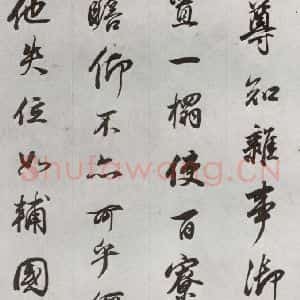 尊知雜事御
置一榻使百寮
瞻仰不亦可乎
他失位如輔國
Shufawang.CN